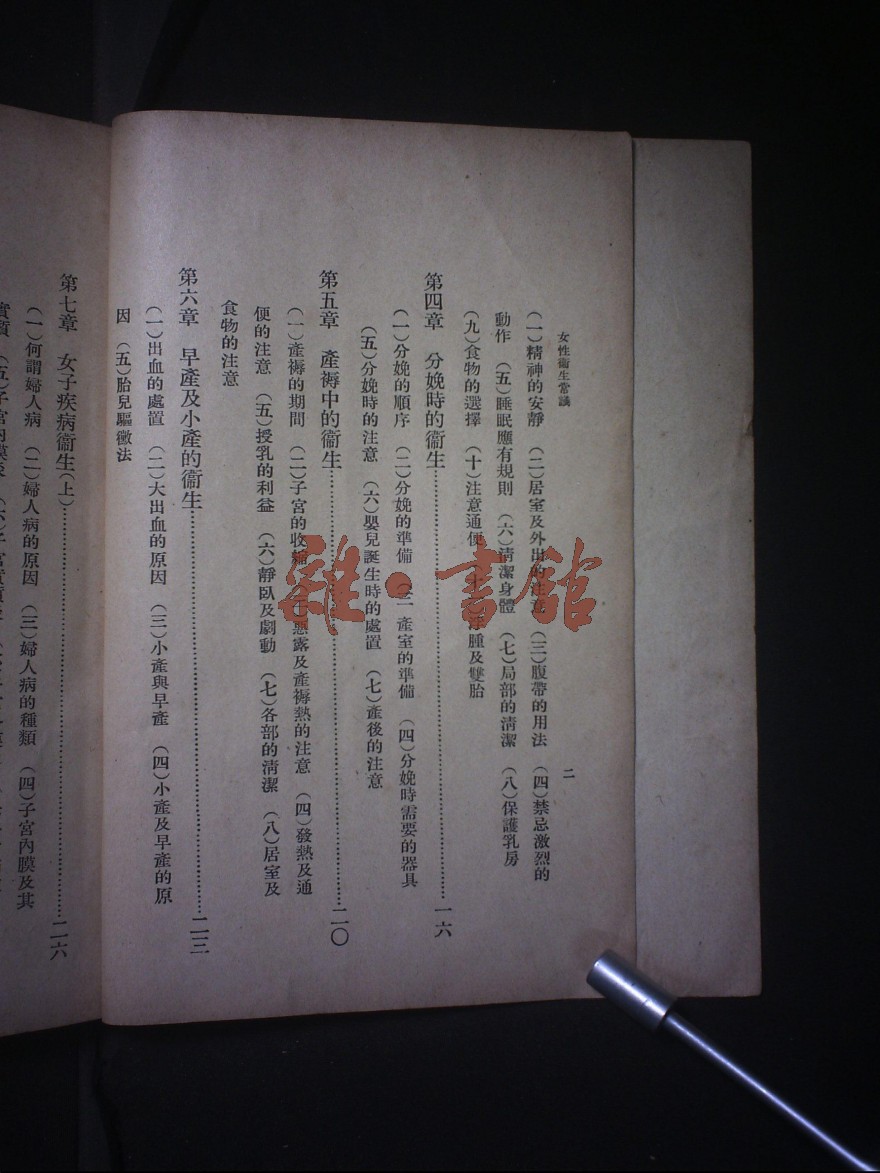 女性衞生常識
二
(一)精神的安靜 (二)居室及外出的注意 (三)腹帶的用法 (四)禁忌激烈的
動作 (五)睡眠應有規則 (六)清潔身體 (七)局部的清潔 (八)保護乳房
(九)食物的選擇 (十)注意通便 浮腫及雙胎
第四章 分娩時的衞生……一六
(一)分娩的順序 (二)分娩的準備 產室的準備 (四)分娩時需要的器具
(五)分娩時的注意 (六)嬰兒誕生時的處置 (七)產後的注意
第五章 產褥中的衞生……二〇
(一)產褥的期間 (二)子宮的收縮 惡露及產褥熱的注意 (四)發熱及通
便的注意 (五)授乳的利益 (六)靜臥及劇動 (七)各部的清潔 (八)居室及
食物的注意
第六章 早產及小產的衞生……二三
(一)出血的處置 (二)大出血的原因 (三)小產與早產 (四)小產及早產的原
因 (五)胎兒驅黴法
第七章 女子疾病衞生(上)……二六
(一)何謂婦人病 (二)婦人病的原因 (三)婦人病的種類 (四)子宮內膜及其
雜·書館